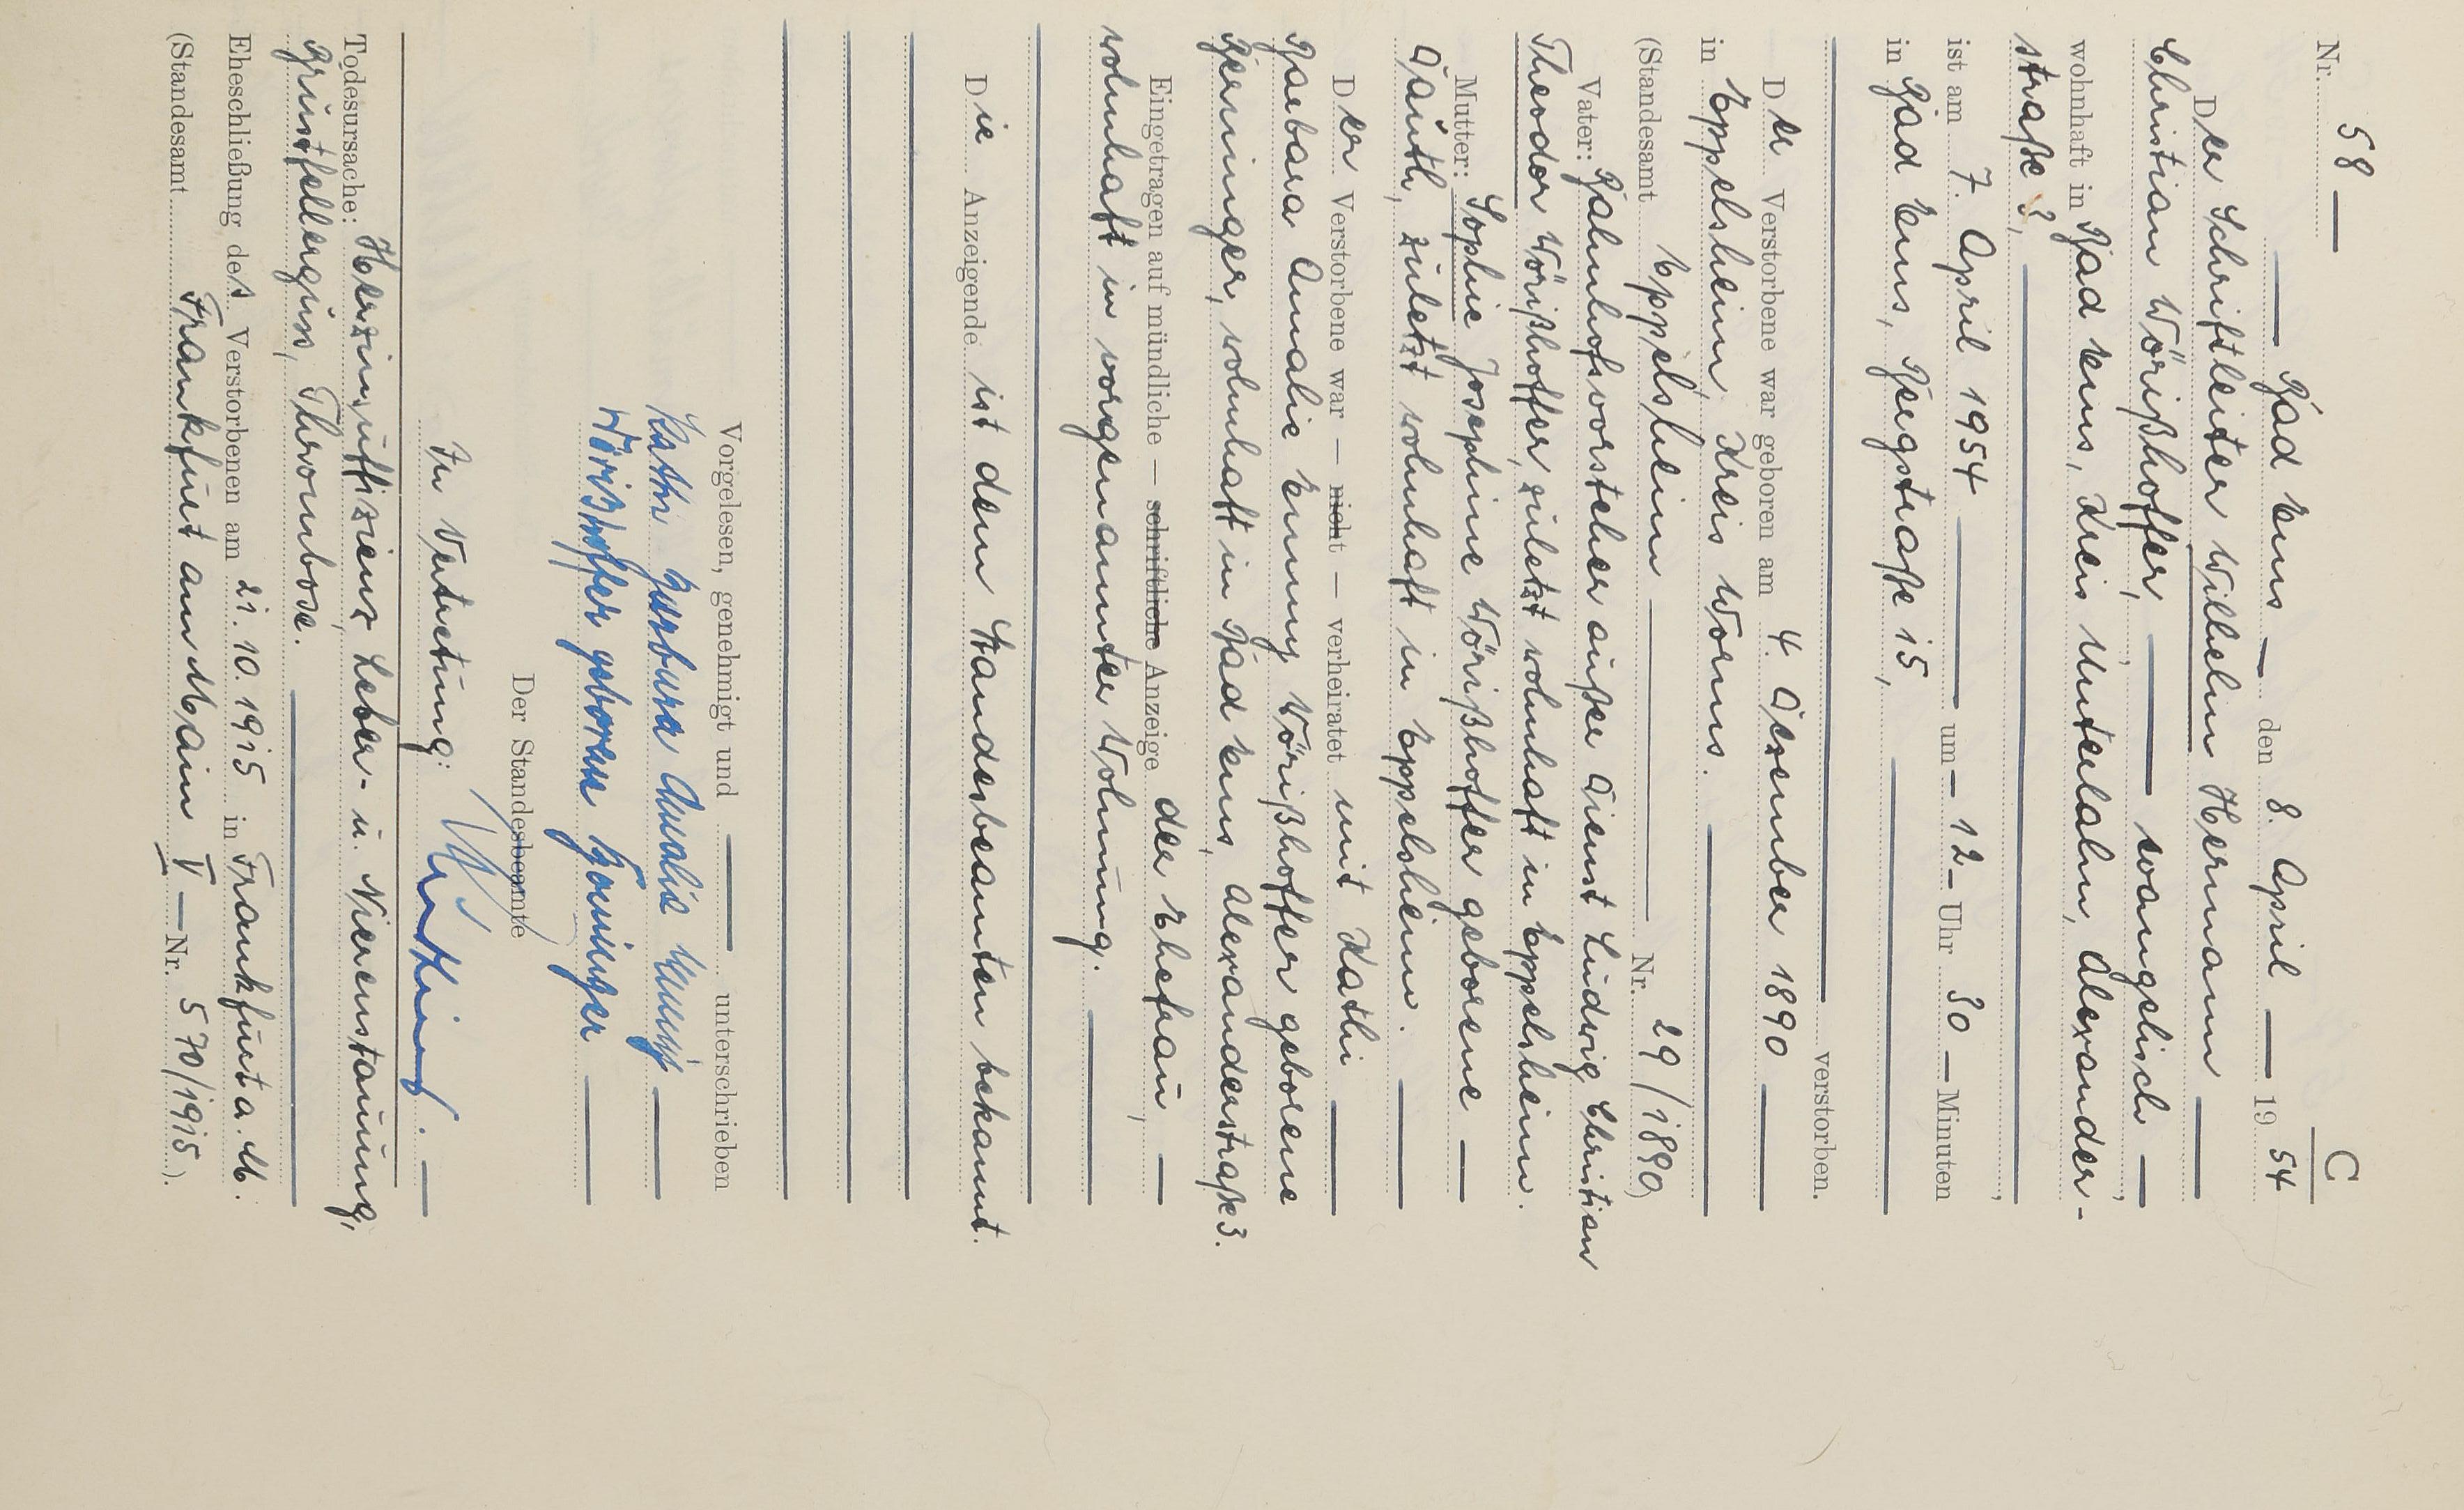 C
Nr. 58 —
— Bad Ems — , den 8. April — 19 54
Der Schriftleiter Wilhelm Hermann —
Christian Wörißhoffer, — evangelisch —,
wohnhaft in Bad Ems, Kreis Unterlahn, Alexander-
straße 3, —,
ist am 7. April 1954 — um — 12 — Uhr 30 — Minuten
in Bad Ems, Bergstraße 15, —
— verstorben.
Der Verstorbene war geboren am 4. Dezember 1890 —
in Eppelsheim, Kreis Worms. —
(Standesamt Eppelsheim — Nr. 29/1890)
Vater: Bahnhofsvorsteher außer Dienst Ludwig Christian
Theodor Wörißhoffer, zuletzt wohnhaft in Eppelsheim.
Mutter: Sophie Josephine Wörißhoffer geborene —
Dauth, zuletzt wohnhaft in Eppelsheim. —
Der Verstorbene war — nicht — verheiratet mit Kathi —
Barbara Amalie Emmy Wörißhoffer geborene
Henninger, wohnhaft in Bad Ems, Alexanderstraße 3.
Eingetragen auf mündliche — schriftliche Anzeige der Ehefrau, —
wohnhaft in vorgenannter Wohnung. —
Die Anzeigende ist dem Standesbeamten bekannt.
Vorgelesen, genehmigt und — unterschrieben
Kathi Barbara Amalie Emmy —
Wörißhoffer geborene Henninger —
Der Standesbeamte
In Vertretung: —
Todesursache: Herzinsuffizienz, Leber- u. Nierenstauung,
Brustfellerguss, Thrombose. —
Eheschließung des Verstorbenen am 21. 10. 1915 in Frankfurt a. M.
(Standesamt Frankfurt am Main V — Nr. 570/1915).